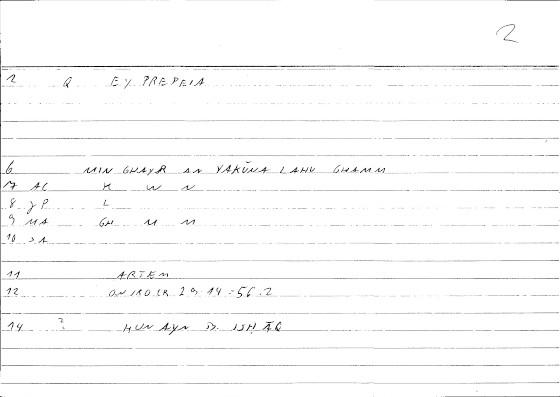 2
2 Q EY PREPEIA
6 MIN GHAYR AN YAKŪNA LAHU GHAMM
7 AC K W N
8 JP L
9 MA GH M M
10 SA
11 ARTEM
12 ONIROCR 29.14 = 56.2
14 ? HUNAYN B. ISḤĀQ